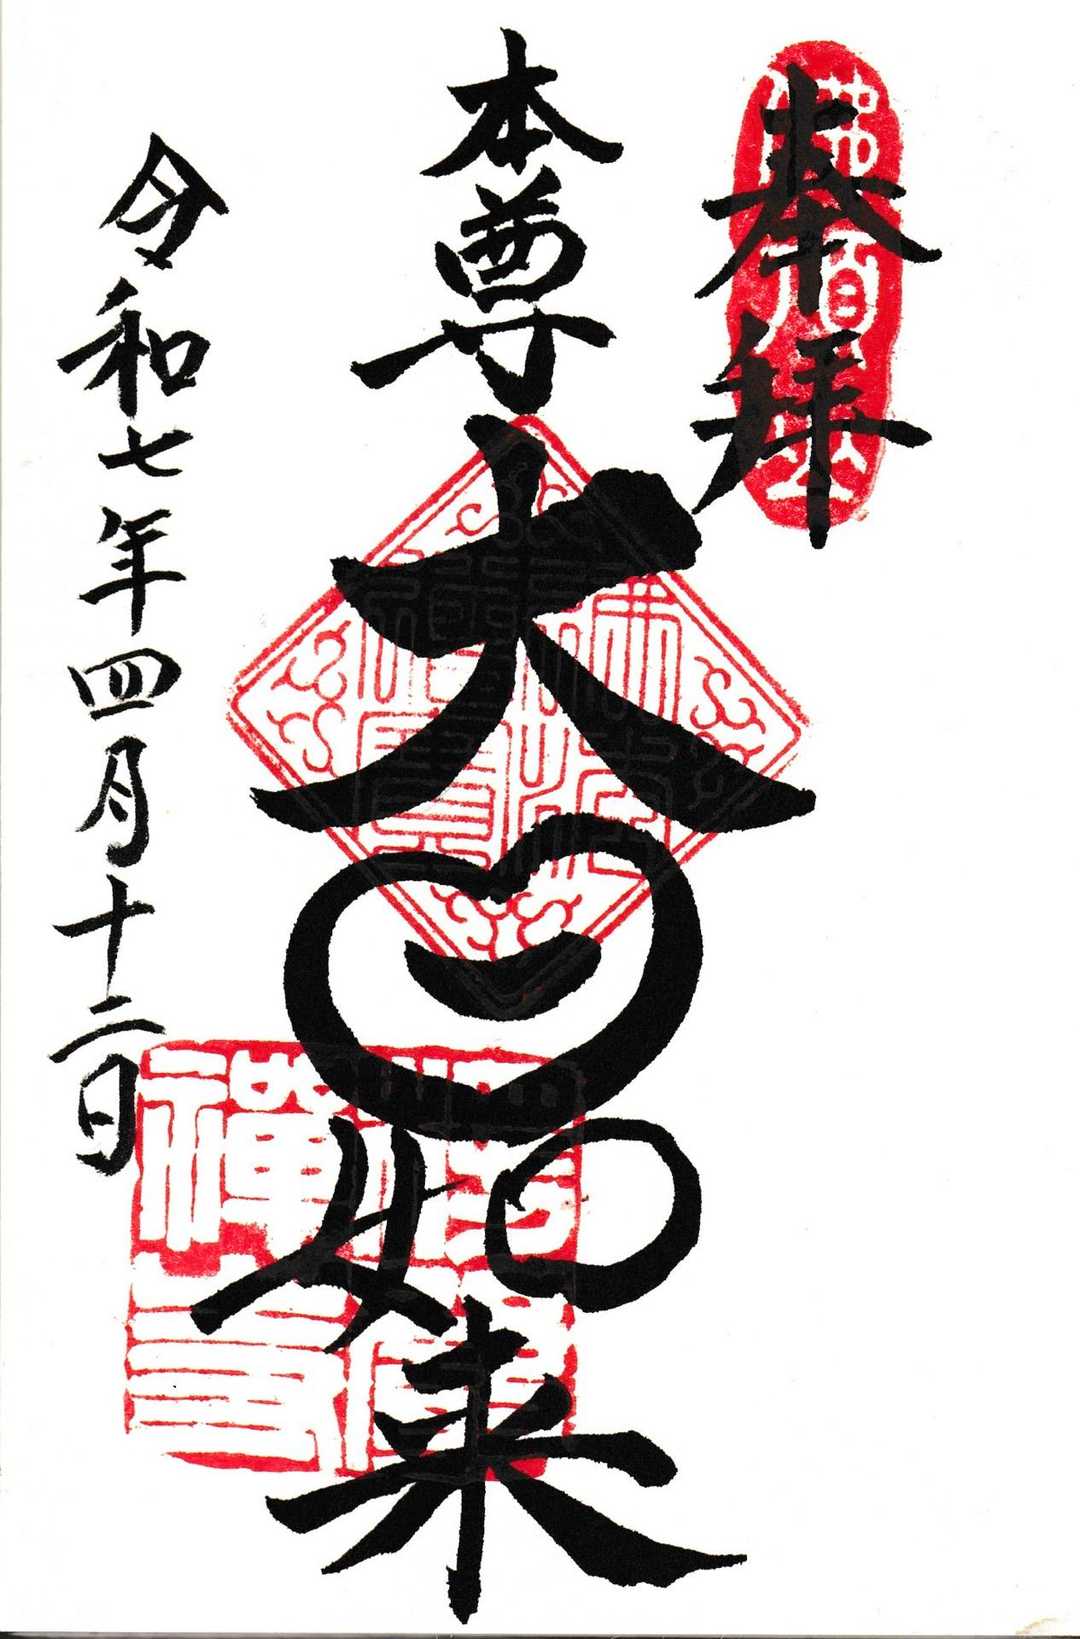 奉拝
本尊大日如来
令和七年四月十二日